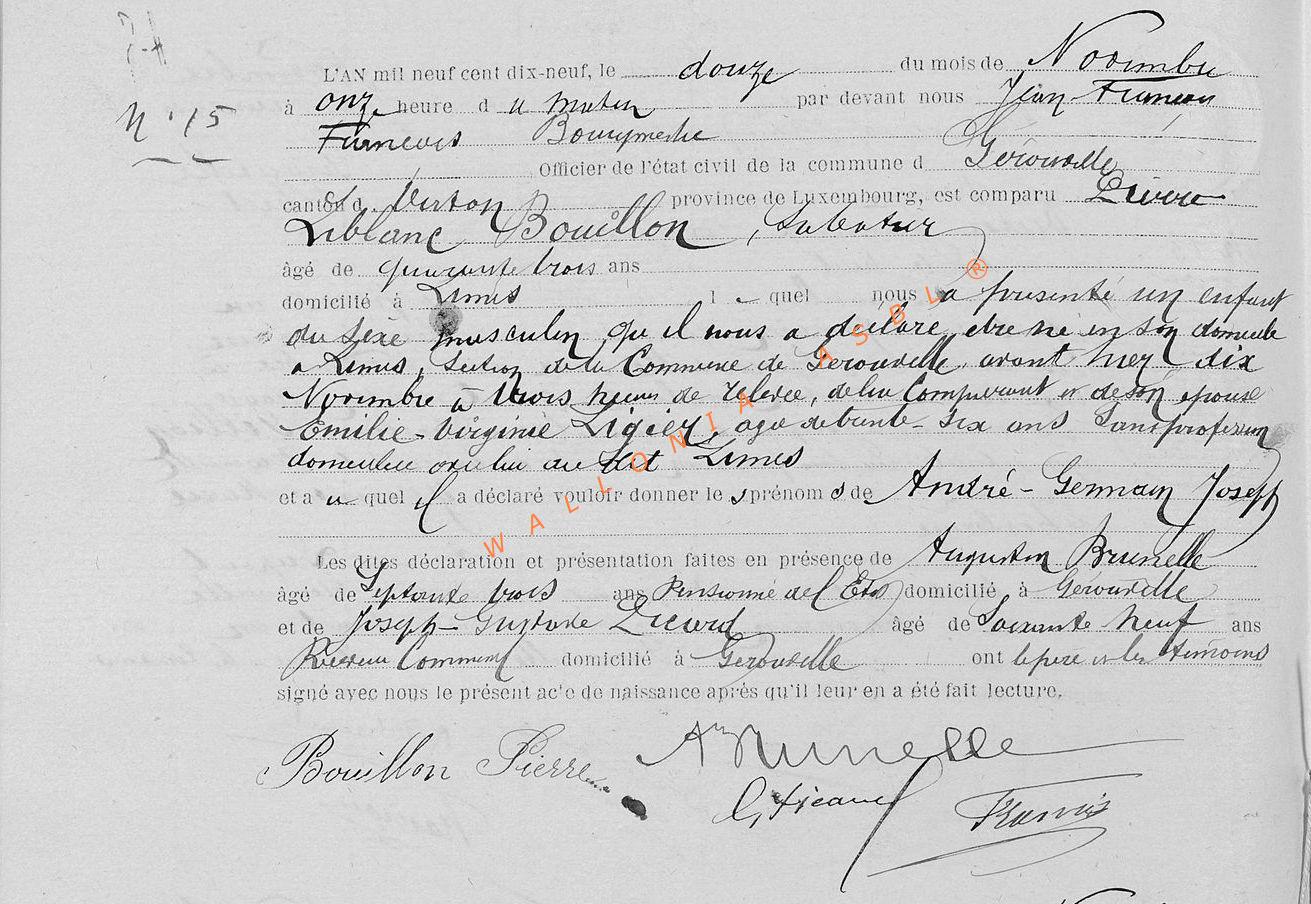 N° 15
L'AN mil neuf cent dix-neuf, le douze du mois de Novembre
à onze heure du matin par devant nous Jean François
François
Officier de l'état civil de la commune d Gérouville
canton d Virton province de Luxembourg, est comparu Pierre
Leblanc Bouillon,
âgé de quarante trois ans
domicilié à Limes l e quel nous a présenté un enfant
du sexe masculin qu il nous a déclaré être né en son domicile
a Limes, section de la Commune de Gérouville avant hier dix
Novembre à trois heures de relevée, de lui Comparant et de son épouse
Emilie Virginie Ligier, agée de trente-six ans Sans profession
domiciliée avec lui au dit Limes
et a u quel il a déclaré vouloir donner le s prénom s de André-Germain Joseph
Les dites déclaration et présentation faites en présence de Augustin Brunelle
âgé de Septante trois ans Pensionné de l'Etat domicilié à Gérouville
et de Joseph-Gustave âgé de Soixante neuf ans
Receveur Communal domicilié à Gérouville ont le père et les témoins
signé avec nous le présent acte de naissance après qu'il leur en a été fait lecture.
Bouillon Pierre ABrunelle
WALLONIA ASBL ®